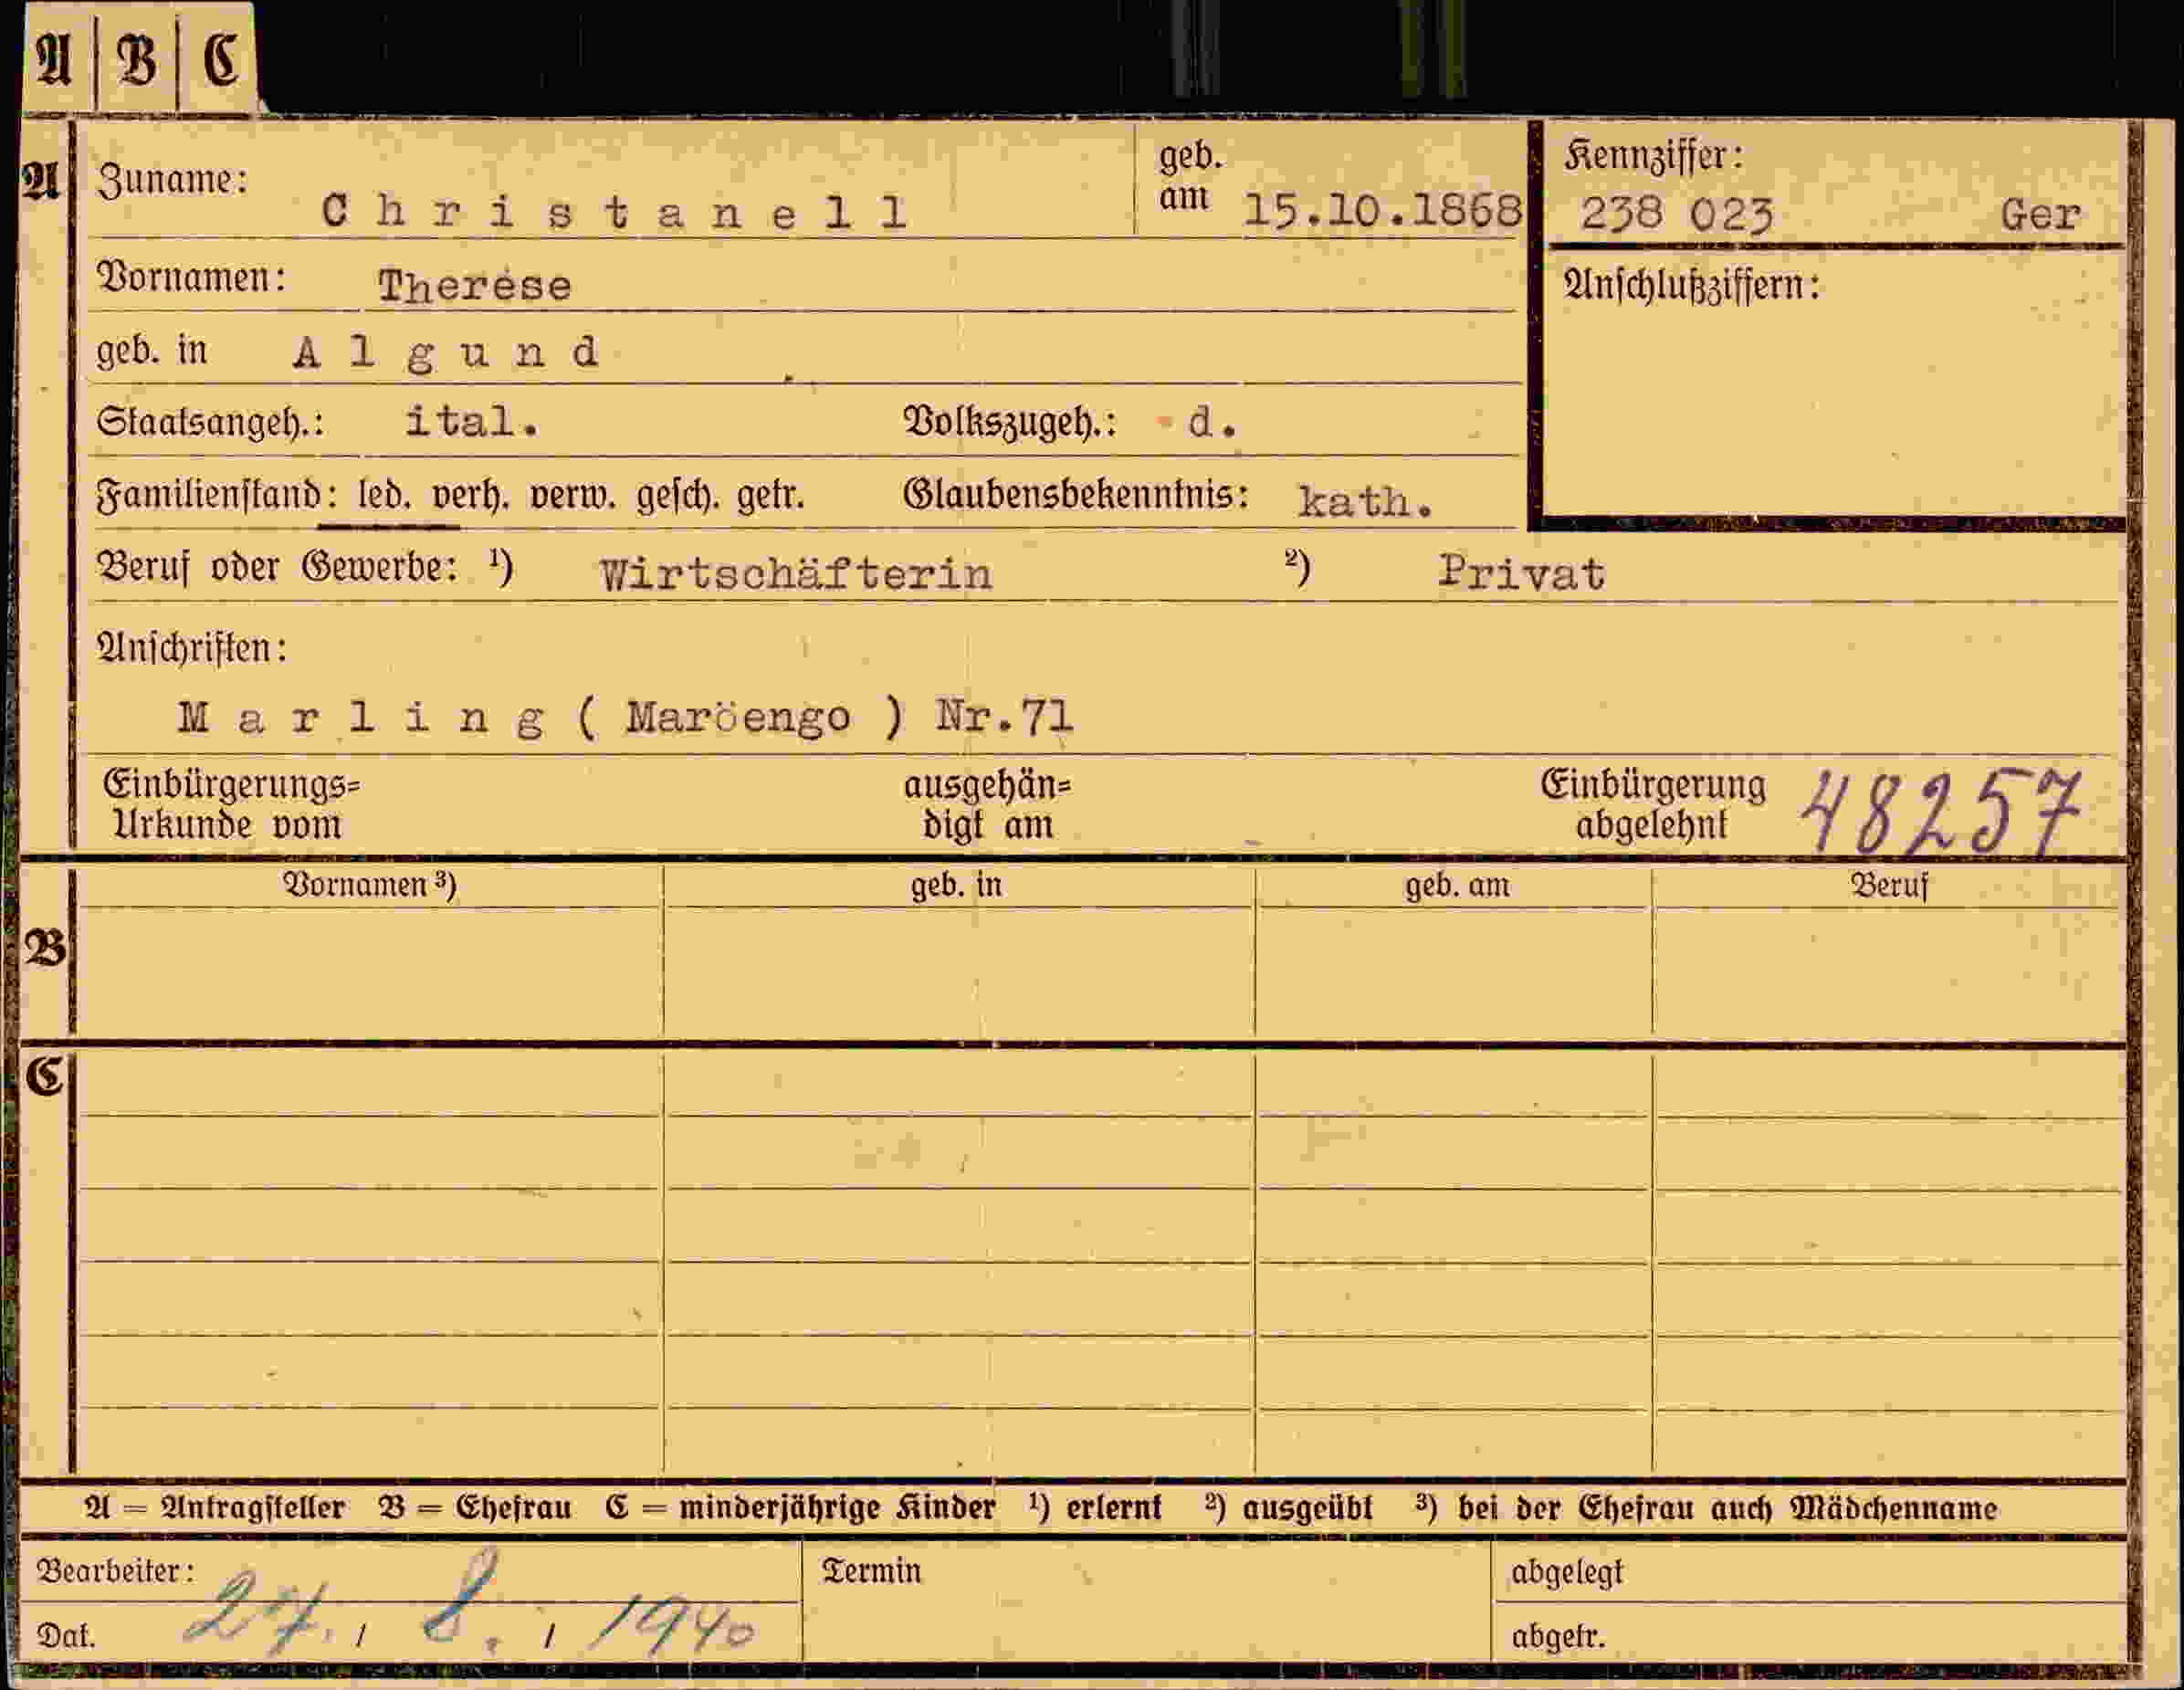 A B C
A Zuname: Christanell geb. am 15.10.1868 Kennziffer: 238 023 Ger
Vornamen: Therése Anschlußziffern:
geb. in Algund
Staatsangeh.: ital. Volkszugeh.: d.
Familienstand: led. verh. verw. gesch. getr. Glaubensbekenntnis: kath.
Beruf oder Gewerbe: ¹) Wirtschäfterin ²) Privat
Anschriften:
Marling ( Maröengo ) Nr.71
Einbürgerungs= ausgehän= Einbürgerung 48257
Urkunde vom digt am abgelehnt
Vornamen ³) geb. in geb. am Beruf
B
C
A = Antragsteller B = Ehefrau C = minderjährige Kinder ¹) erlernt ²) ausgeübt ³) bei der Ehefrau auch Mädchenname
Bearbeiter: Termin abgelegt
Dat. 27. 8. 1940 abgetr.